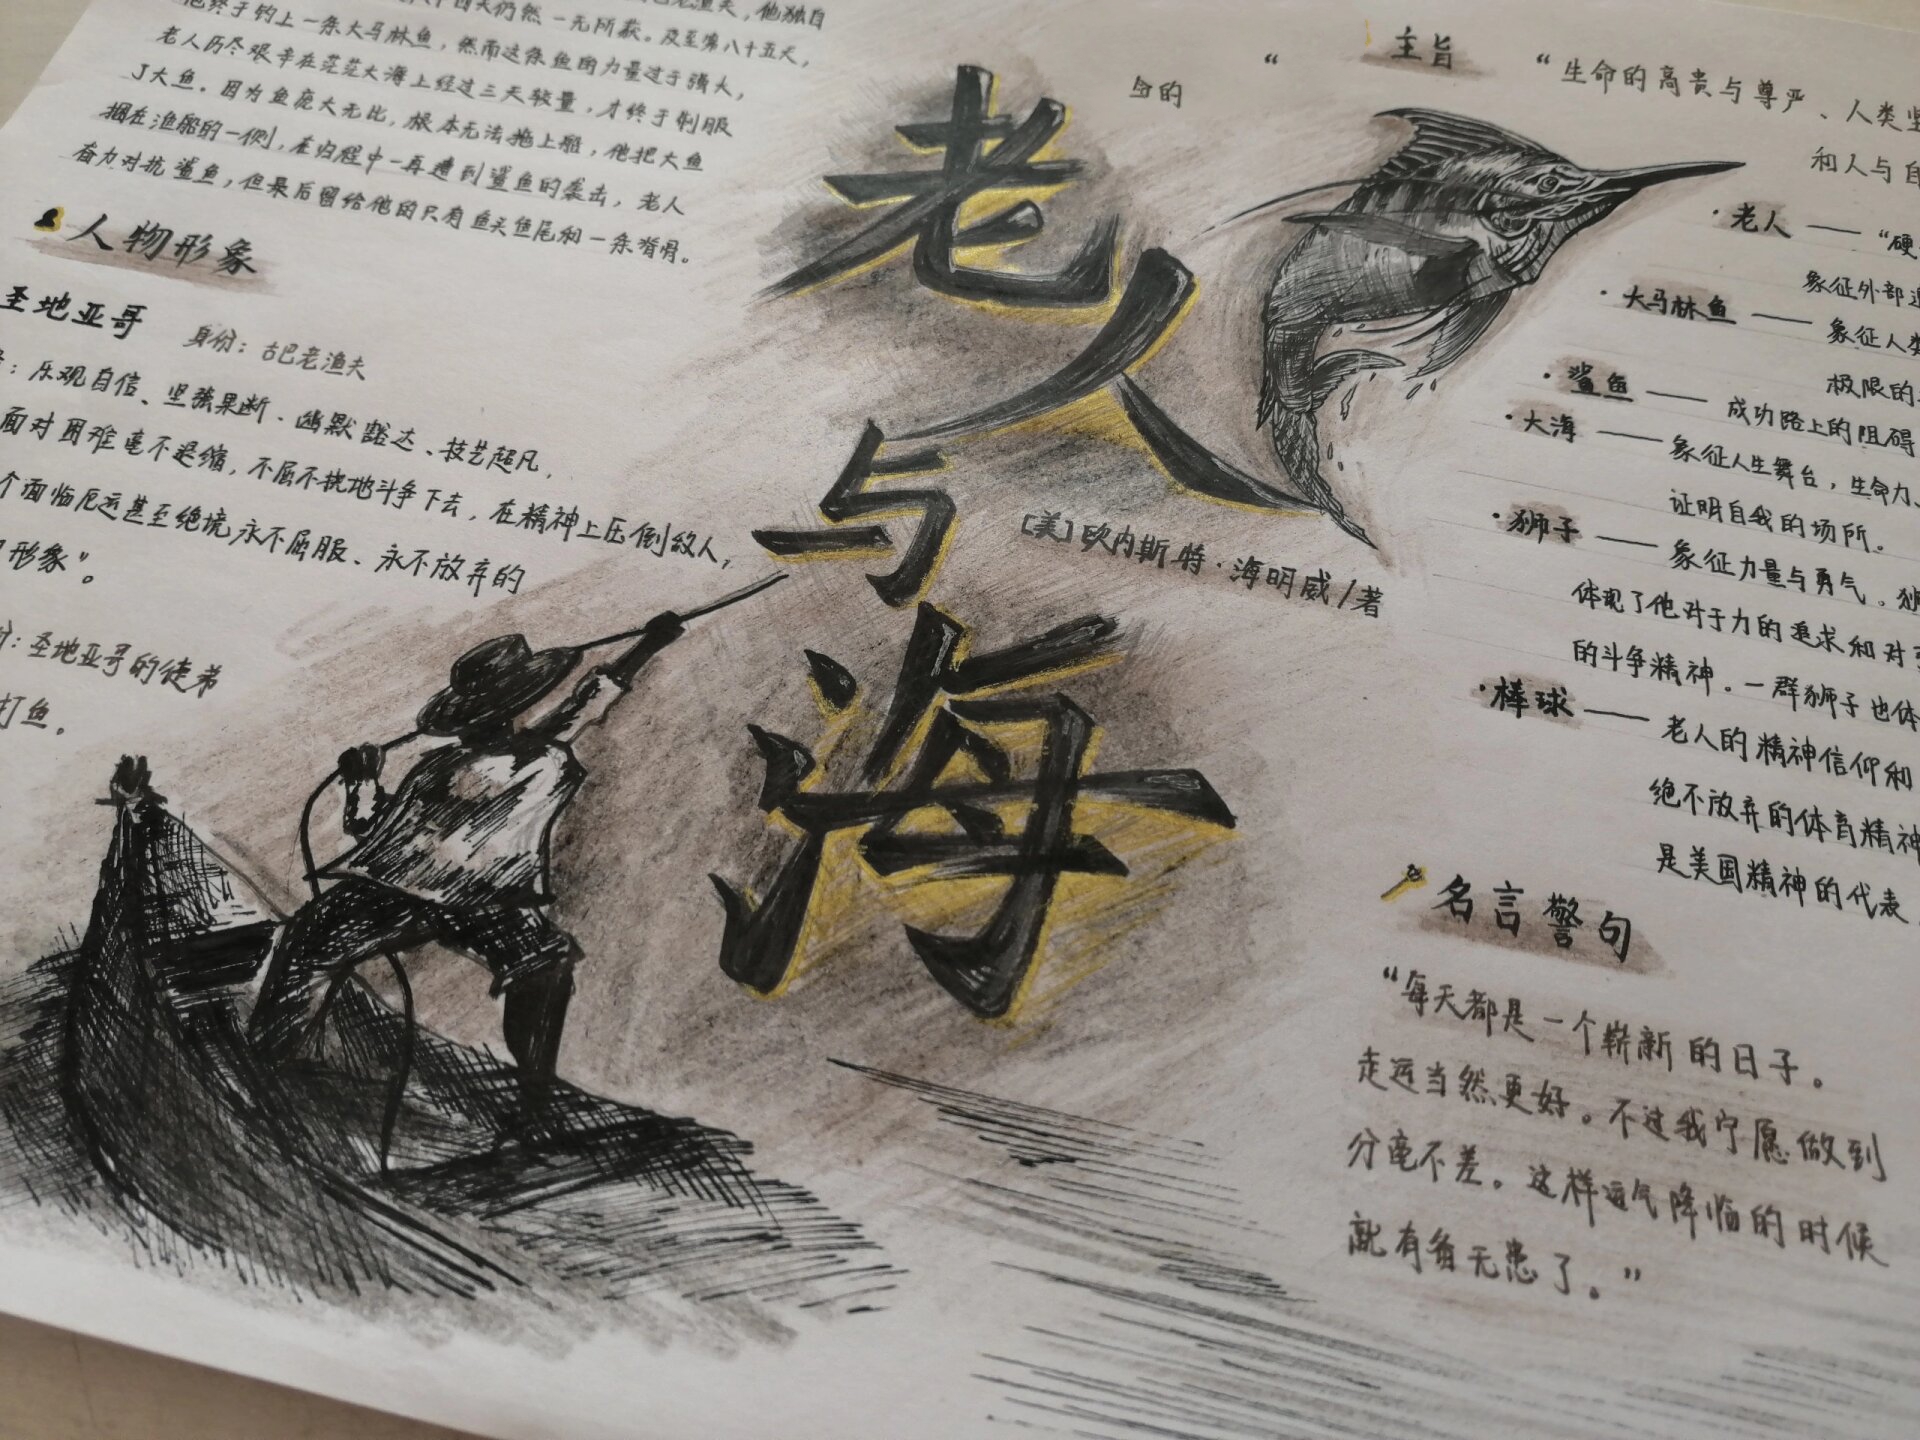 十四天仍然一无所获。及至第八十五天，
他终于钓上一条大马林鱼，然而这条鱼的力量过于强大，
老人历尽艰辛在茫茫大海上经过三天较量，才终于制服
了大鱼。因为鱼庞大无比，根本无法拖上船，他把大鱼
捆在渔船的一侧，在归程中一再遭到鲨鱼的袭击，老人
奋力对抗鲨鱼，但最后留给他的只有鱼头鱼尾和一条脊骨。
人物形象
圣地亚哥 身份：古巴老渔夫
：乐观自信、坚强果断、幽默豁达、技艺超凡，
面对困难毫不退缩，不屈不挠地斗争下去，在精神上压倒敌人，
个面临厄运甚至绝境永不屈服、永不放弃的
形象”。
：圣地亚哥的徒弟
打鱼。
老人与海
[美]欧内斯特·海明威/著
主旨
“
与的
“生命的高贵与尊严、人类坚
和人与自
·老人——“硬
象征外部
·大马林鱼——象征人类
极限的
·鲨鱼——成功路上的阻碍
·大海——象征人生舞台，生命力、
证明自我的场所。
·狮子——象征力量与勇气。狮
体现了他对于力的追求和对
的斗争精神。一群狮子也体
·棒球——老人的精神信仰和
绝不放弃的体育精神
是美国精神的代表
名言警句
“每天都是一个崭新的日子。
走运当然更好。不过我宁愿做到
分毫不差。这样运气降临的时候
就有备无患了。”